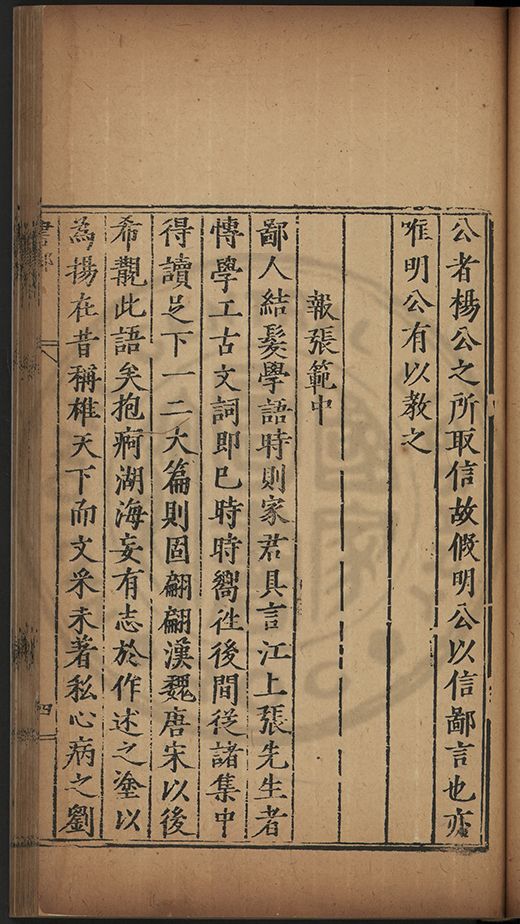 公者楊公之所取信故假明公以信鄙言也亦
唯明公有以教之
報張範中
鄙人結髪學語時則家君具言江上張先生者
博學工古文詞即已時時嚮徃後間從諸集中
得讀足下一二大篇則固翩翩漢魏唐宋以後
希覯此語矣抱痾湖海妄有志於作述之塗以
為揚在昔稱雄天下而文采未著私心病之劉
四